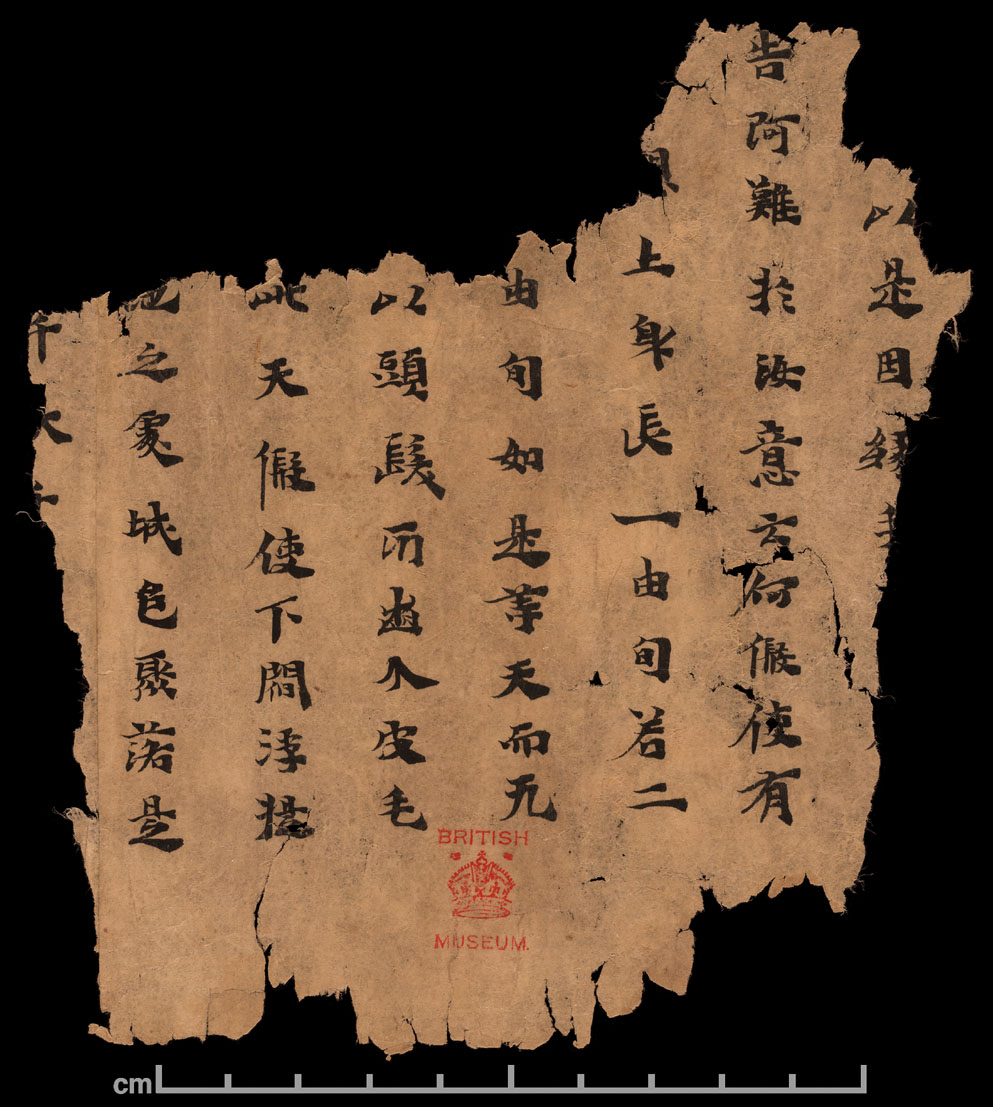 以是因緣
告阿難於汝意云何假使有
上身長一由旬若二
由旬如是等天而无
以頭髮所出入皮毛
此天假使下閻浮提
之處城邑聚落是
千大千
BRITISH
MUSEUM.
cm